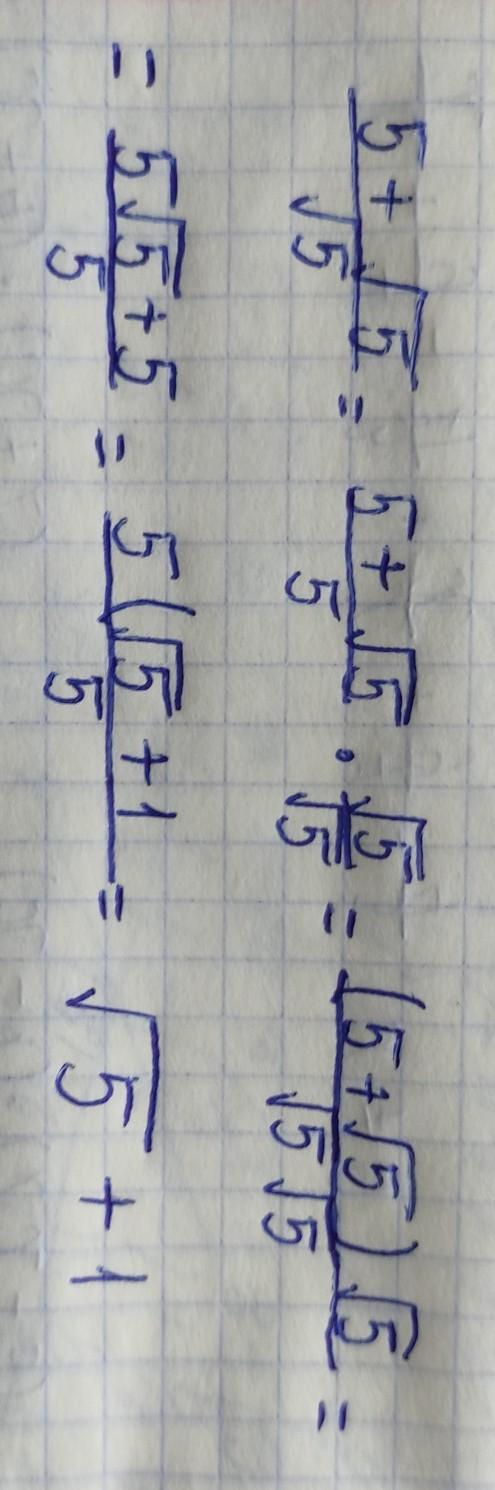 (5+√5)/√5 = (5+√5)/5 · √5/√5 = ((5+√5)√5)/(√5√5) =
= (5√5+5)/5 = (5(√5+1)/5 = √5+1